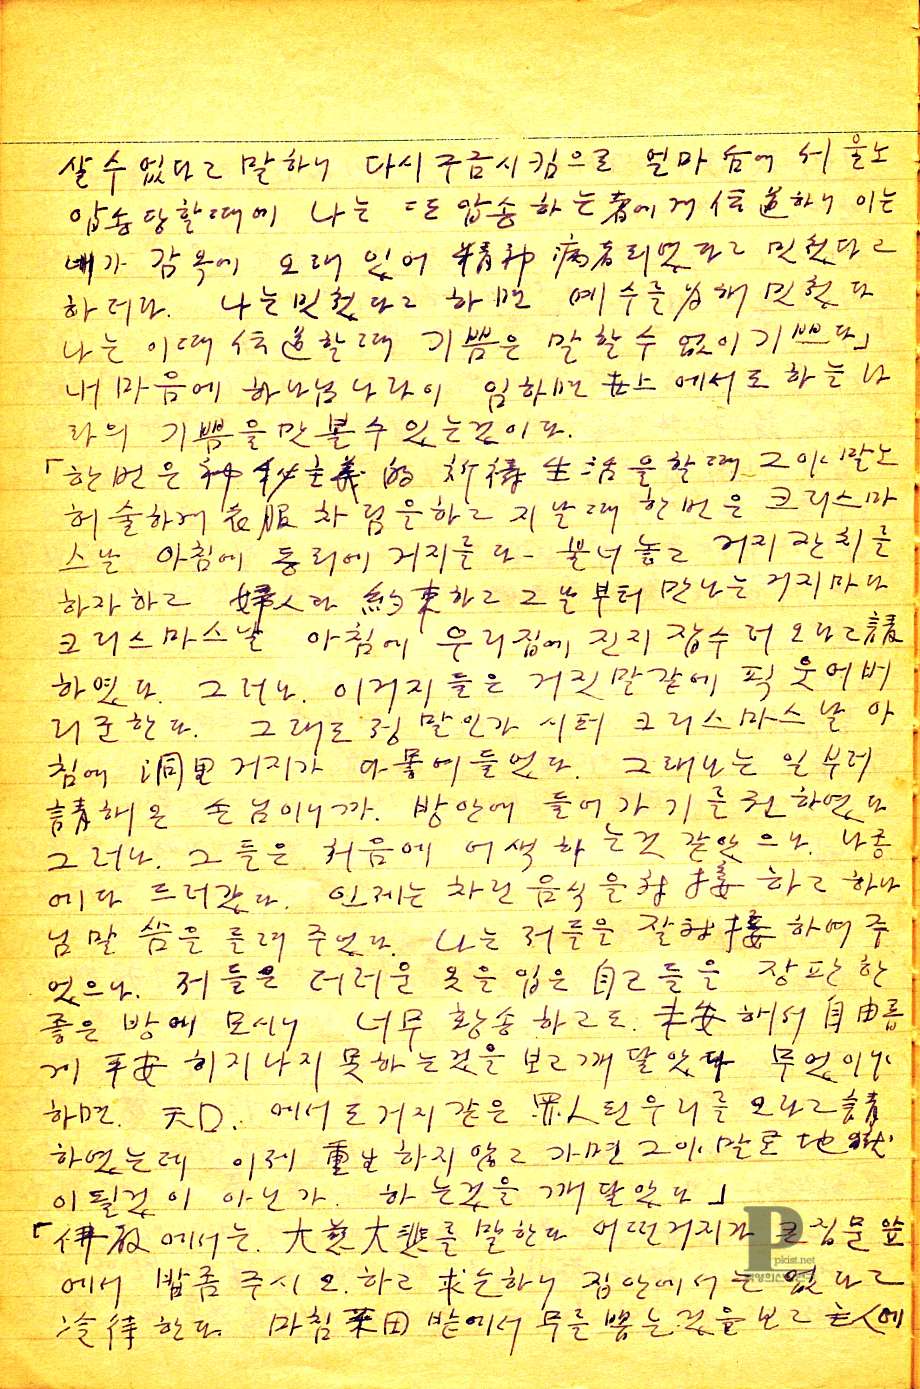 살수 없다고 말하니 다시 구금시킴으로 얼마 숨에 서울노
압송당할때에 나는 또 압송하는 者에게 伝道하니 이는
내가 감옥에 오래 있어 精神病者되였다고 밋첬다고
하더라. 나는 밋첬다고 하면 예수를 위해 밋첬다
나는 이때 伝道할때 기쁨은 말할수 없이 기쁘다」
내 마음에 하나님 나라이 임하면 世上에서도 하늘나
라의 기쁨을 맛볼수 있는것이다.
「한번은 神秘主義的 祈禱生活을 할때 그야말노
허술하게 衣服차림을하고 지날때 한번은 크리스마
스날 아침에 동리에 거지를 다- 불너놓고 거지잔치를
하자하고 婦人과 約束하고 그날부터 만나는 거지마다
크리스마스날 아침에 우리집에 진지 잡수러 오라고 請
하였다. 그러나. 이거지들은 거짓말같에 픽 웃어버
리군한다. 그래도 정말인가 시퍼 크리스마스날 아
침에 洞里거지가 다 몰여들었다. 그래 나는 일부러
請해온 손님이니까. 방안에 들어가기를 권하였다
그러나. 그들은 처음에 어색하는것 같앗으나. 나종
에다 드러갔다. 인제는 차린 음식을 対接하고 하나
님 말씀을 들려 주었다. 나는 저들을 잘 対接하여 주
었으나. 저들은 더러운 옷을 입은 自己들을 장판한
좋은 방에 모시니 너무 황송하고도. 未安해서 自由롭
게 平安히 지나지 못하는것을 보고 깨달았다 무엇이냐
하면. 天口. 에서도 거지같은 罪人된 우리를 오라고 請
하였는데 이제 重生하지 않고 가면 그야말로 地獄
이 될것이 아닌가. 하는것을 깨달았다」
「伊殷에서는. 大慈大悲를 말한다 어떤거지가 큰집 문앞
에서 밥좀 주시오. 하고 求乞하니 집안에서는 없다고
冷待한다. 마침 菜田밭에서 무를 뽑는것을 보고 主人에
P
pkist.net